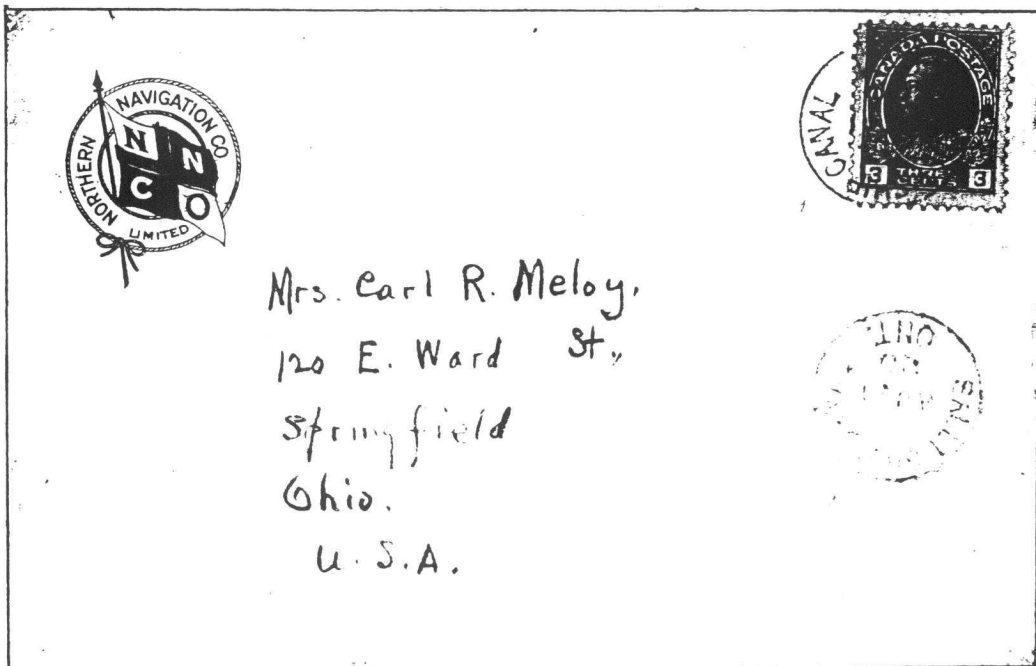 NORTHERN NAVIGATION CO
LIMITED
N N
C O
CANAL
CANADA POSTAGE
3 CENTS 3
Mrs. Carl R. Meloy,
120 E. Ward St.,
Springfield
Ohio.
U.S.A.
ONT